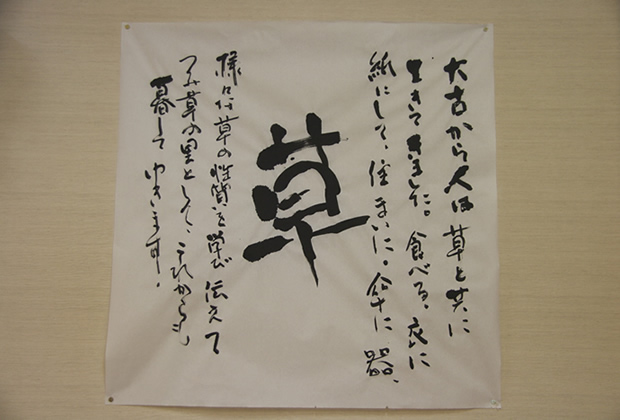 大古から人は草と共に
生きてきました。食べる、衣に
紙にして、住まいに。傘に器、
草
様々な草の性質を学び伝えて
つみ草の里として、これからも
暮してゆきます。